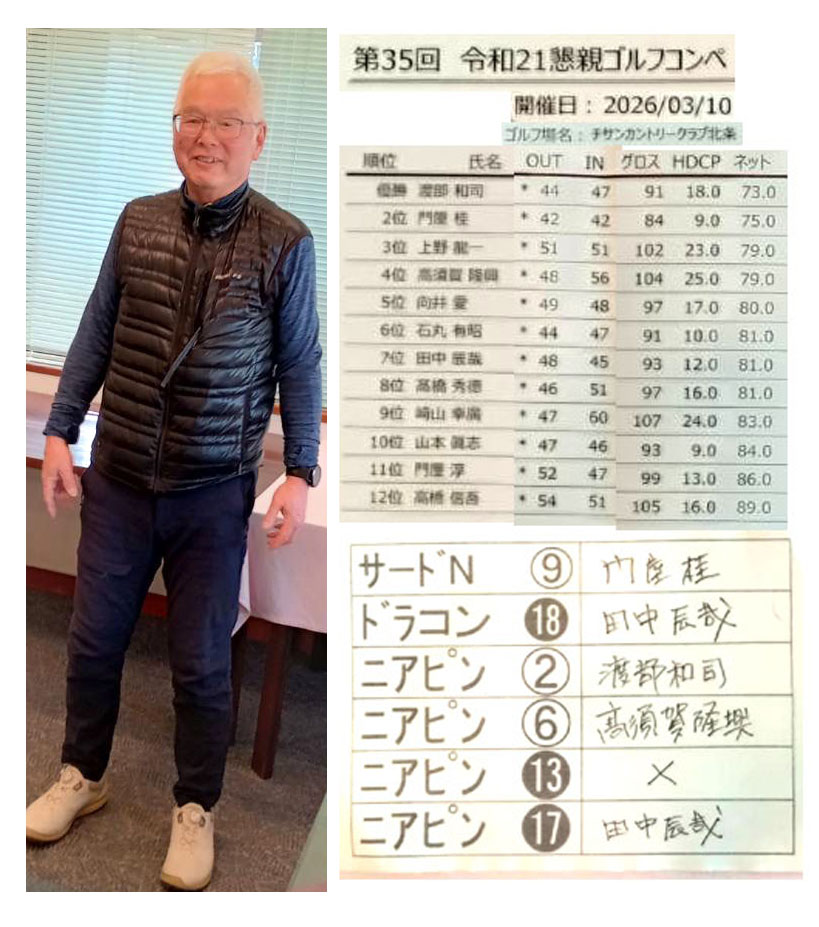 第35回 令和21懇親ゴルフコンペ
開催日： 2026/03/10
ゴルフ場名： チサンカントリークラブ北条
順位 氏名 OUT IN グロス HDCP ネット
優勝 渡部 和司 * 44 47 91 18.0 73.0
2位 門屋 桂 * 42 42 84 9.0 75.0
3位 上野 龍一 * 51 51 102 23.0 79.0
4位 高須賀 隆興 * 48 56 104 25.0 79.0
5位 向井 愛 * 49 48 97 17.0 80.0
6位 石丸 有昭 * 44 47 91 10.0 81.0
7位 田中 辰哉 * 48 45 93 12.0 81.0
8位 高橋 秀德 * 46 51 97 16.0 81.0
9位 崎山 幸廣 * 47 60 107 24.0 83.0
10位 山本 眞志 * 47 46 93 9.0 84.0
11位 門屋 淳 * 52 47 99 13.0 86.0
12位 高橋 信吾 * 54 51 105 16.0 89.0
サードN ⑨ 門屋 桂
ドラコン ⓲ 田中辰哉
ニアピン ② 渡部和司
ニアピン ⑥ 高須賀隆興
ニアピン ⓭ ×
ニアピン ⓱ 田中辰哉